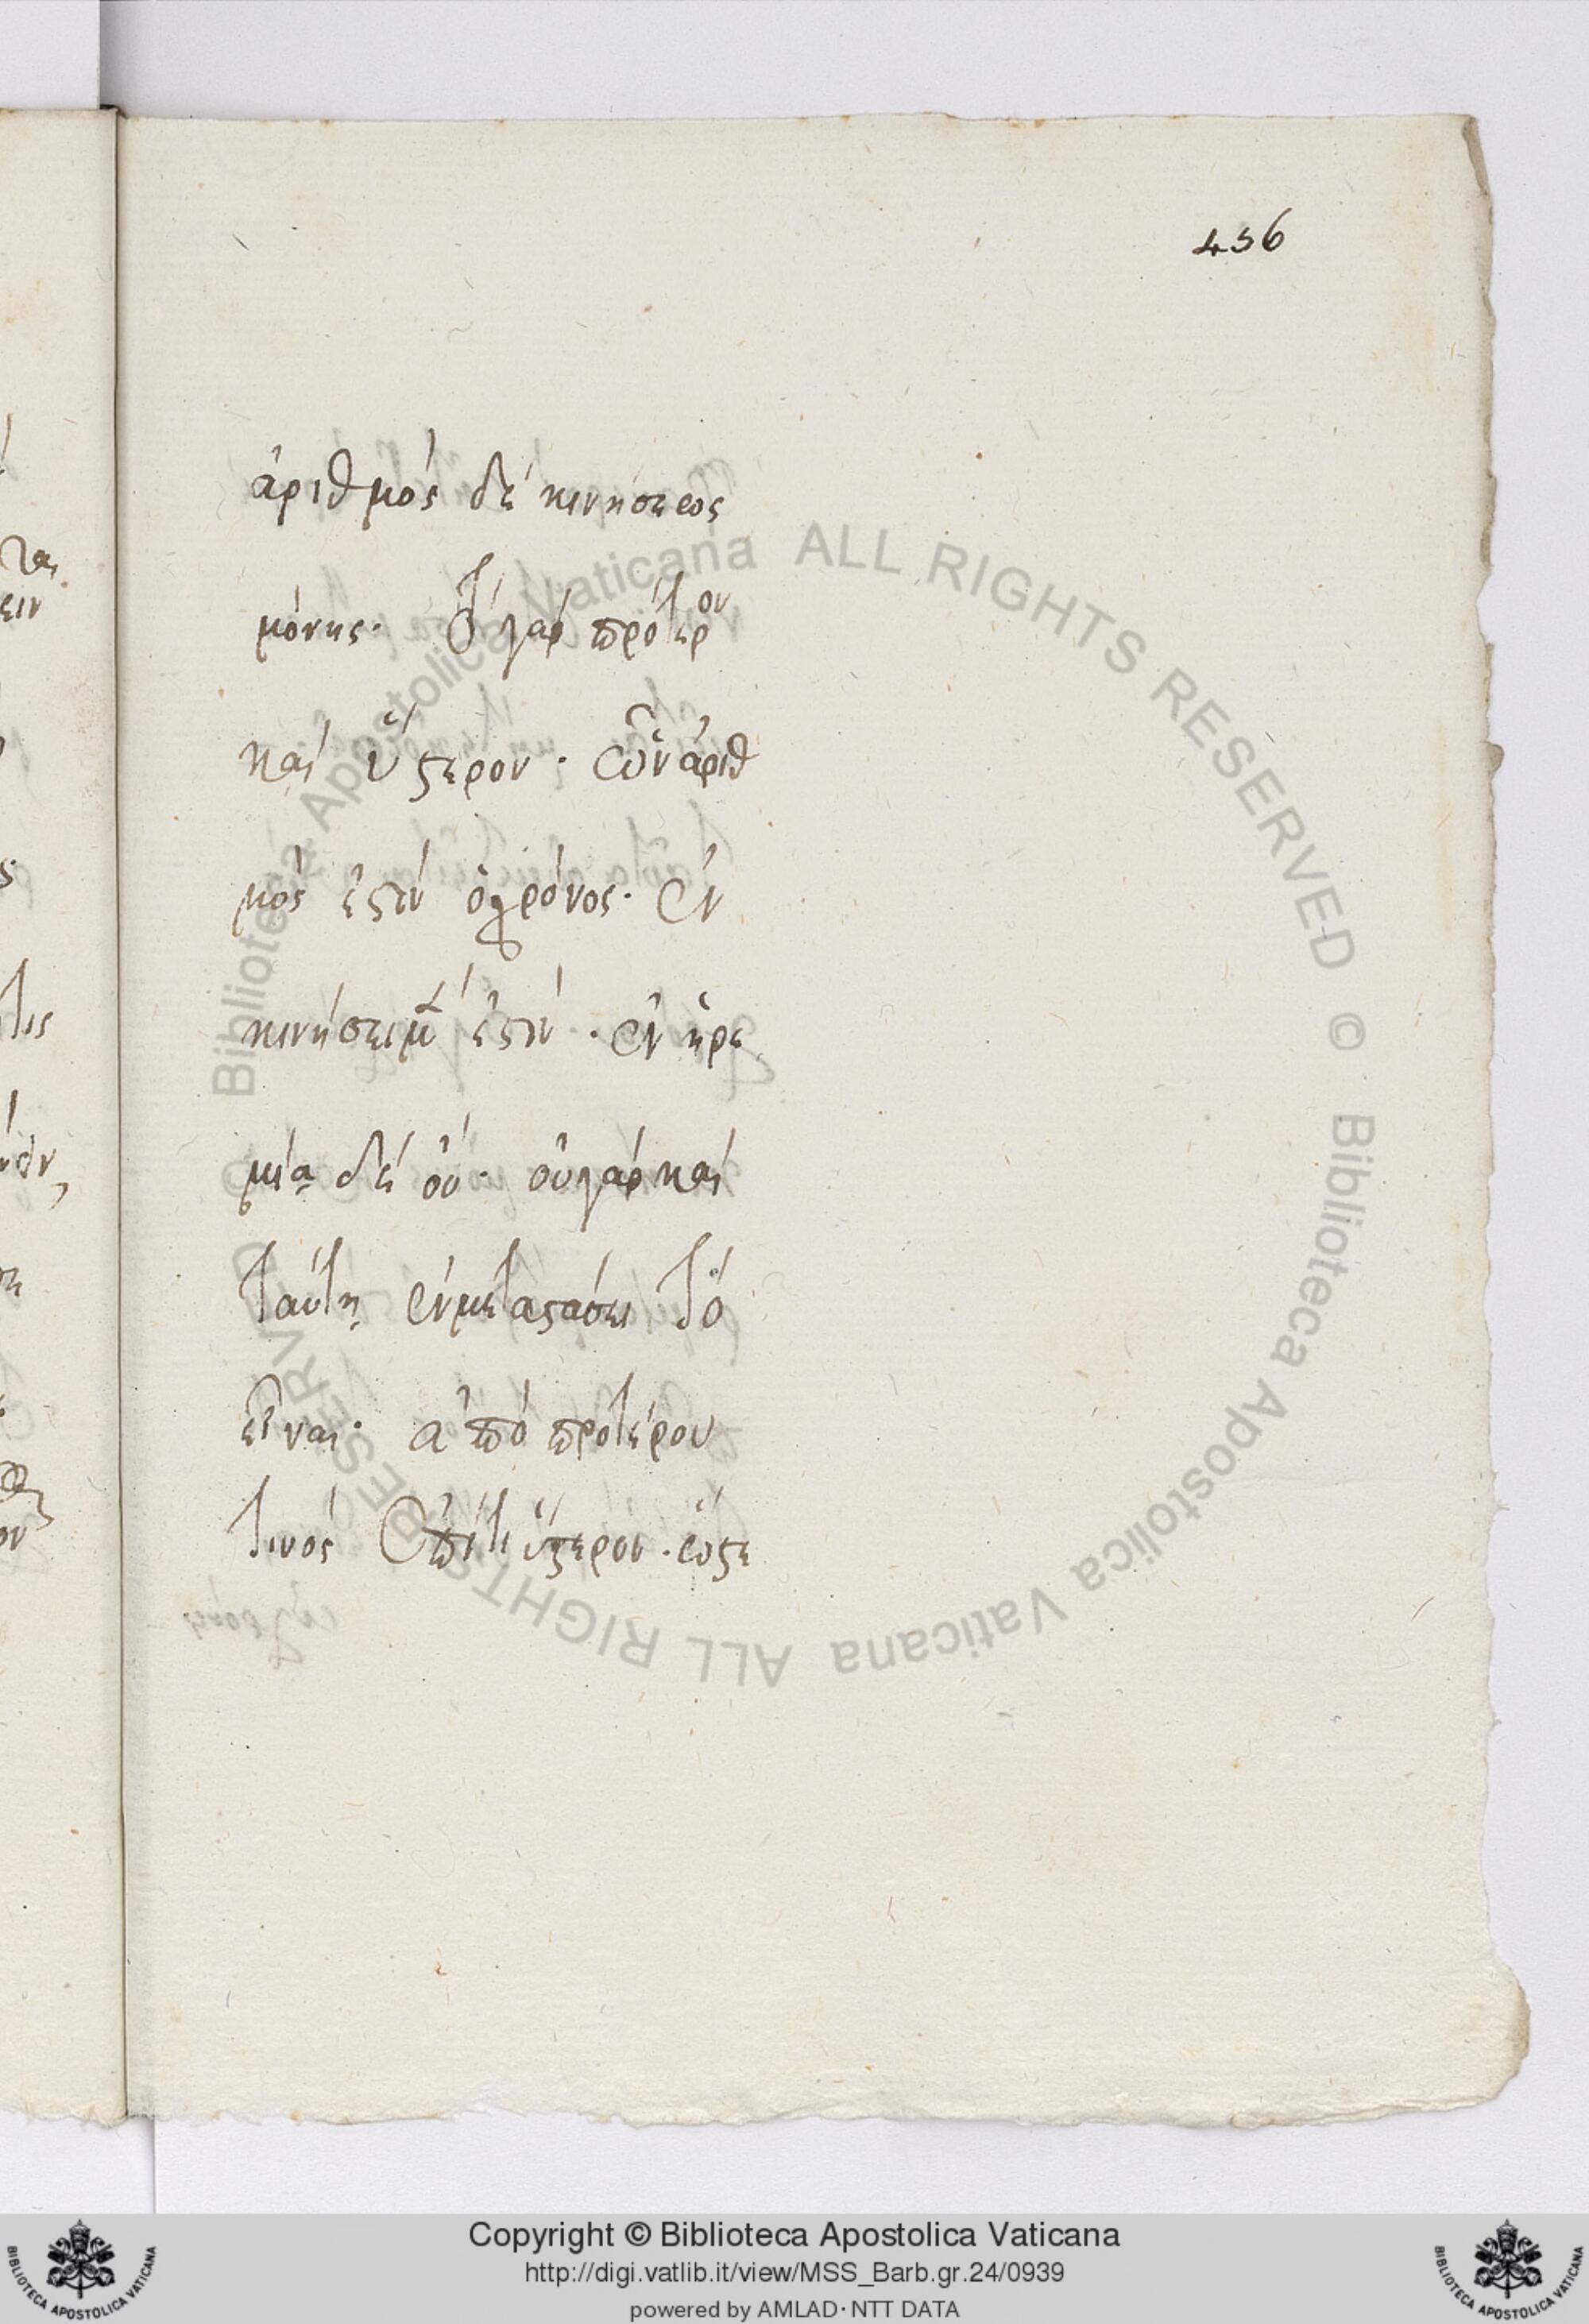 456
ἀριθμὸς δὲ κινήσεως
μόνης· τὸ γὰρ πρότερον
καὶ ὕστερον· ὧν ἀριθ
μὸς ἐστὶν ὁ χρόνος· ἐν
κινήσει μὲν ἐστὶν· ἐν ἠρε
μίᾳ δὲ οὐ· οὐ γὰρ καὶ
ταύτῃ ἐν μεταστάσει τὸ
εἶναι· ἀπὸ προτέρου
τινὸς ἐπί τι ὕστερον· ὥστε
Biblioteca Apostolica Vaticana ALL RIGHTS RESERVED © Biblioteca Apostolica Vaticana ALL RIGHTS RESERVED ©
Copyright © Biblioteca Apostolica Vaticana
http://digi.vatlib.it/view/MSS_Barb.gr.24/0939
powered by AMLAD · NTT DATA
BIBLIOTECA APOSTOLICA VATICANA
BIBLIOTECA APOSTOLICA VATICANA